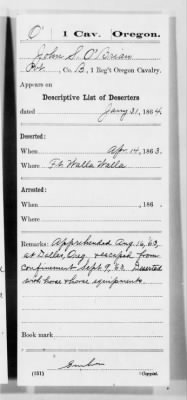 O' | 1 Cav. | Oregon.
John S. O'Brian
Pvt., Co. B, 1 Reg't Oregon Cavalry.
Appears on
Descriptive List of Deserters
dated Jany 31, 1864.
Deserted:
When Apr. 14, 1863.
Where Ft. Walla Walla
Arrested:
When , 186 .
Where
Remarks: Apprehended Aug. 16, 63,
at Dallas, Oreg. & escaped from
confinement Sept 9, 63. Deserted
with horse & horse equipments.
Book mark:
(251) Copyist.